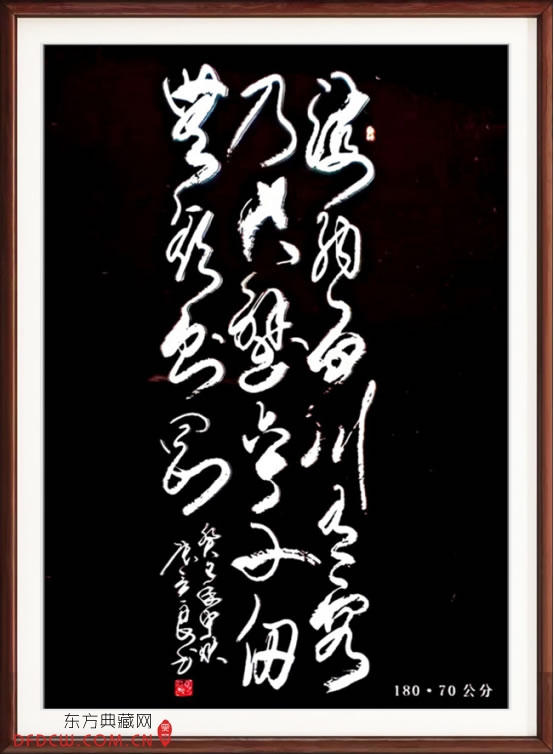 海纳百川有容
乃大壁立千仞
無欲则刚
癸巳年中秋
180·70公分
东方典藏网
DFDCW.COM.CN